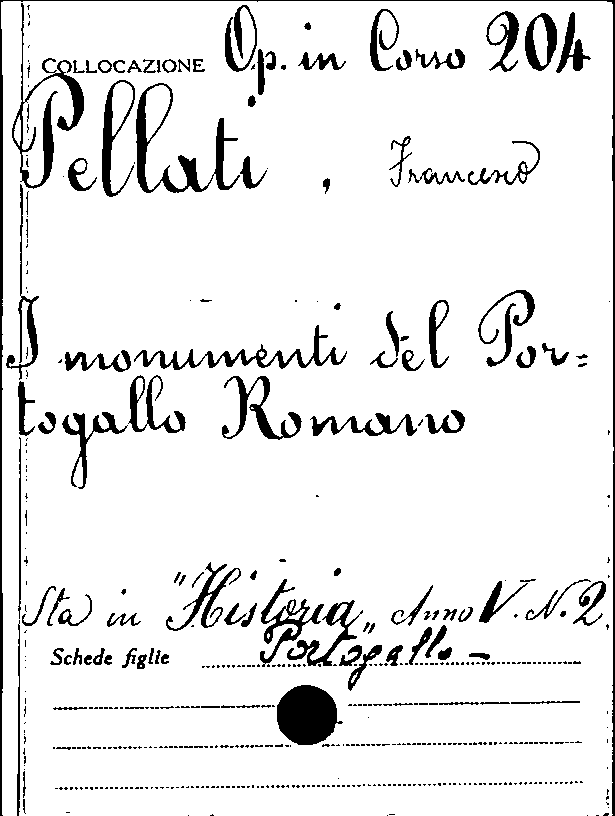 COLLOCAZIONE Op. in Corso 204
Pellati, Francesco
I monumenti del Por=
togallo Romano
Sta in "Historia„ Anno V. N. 2.
Schede figlie Portogallo -